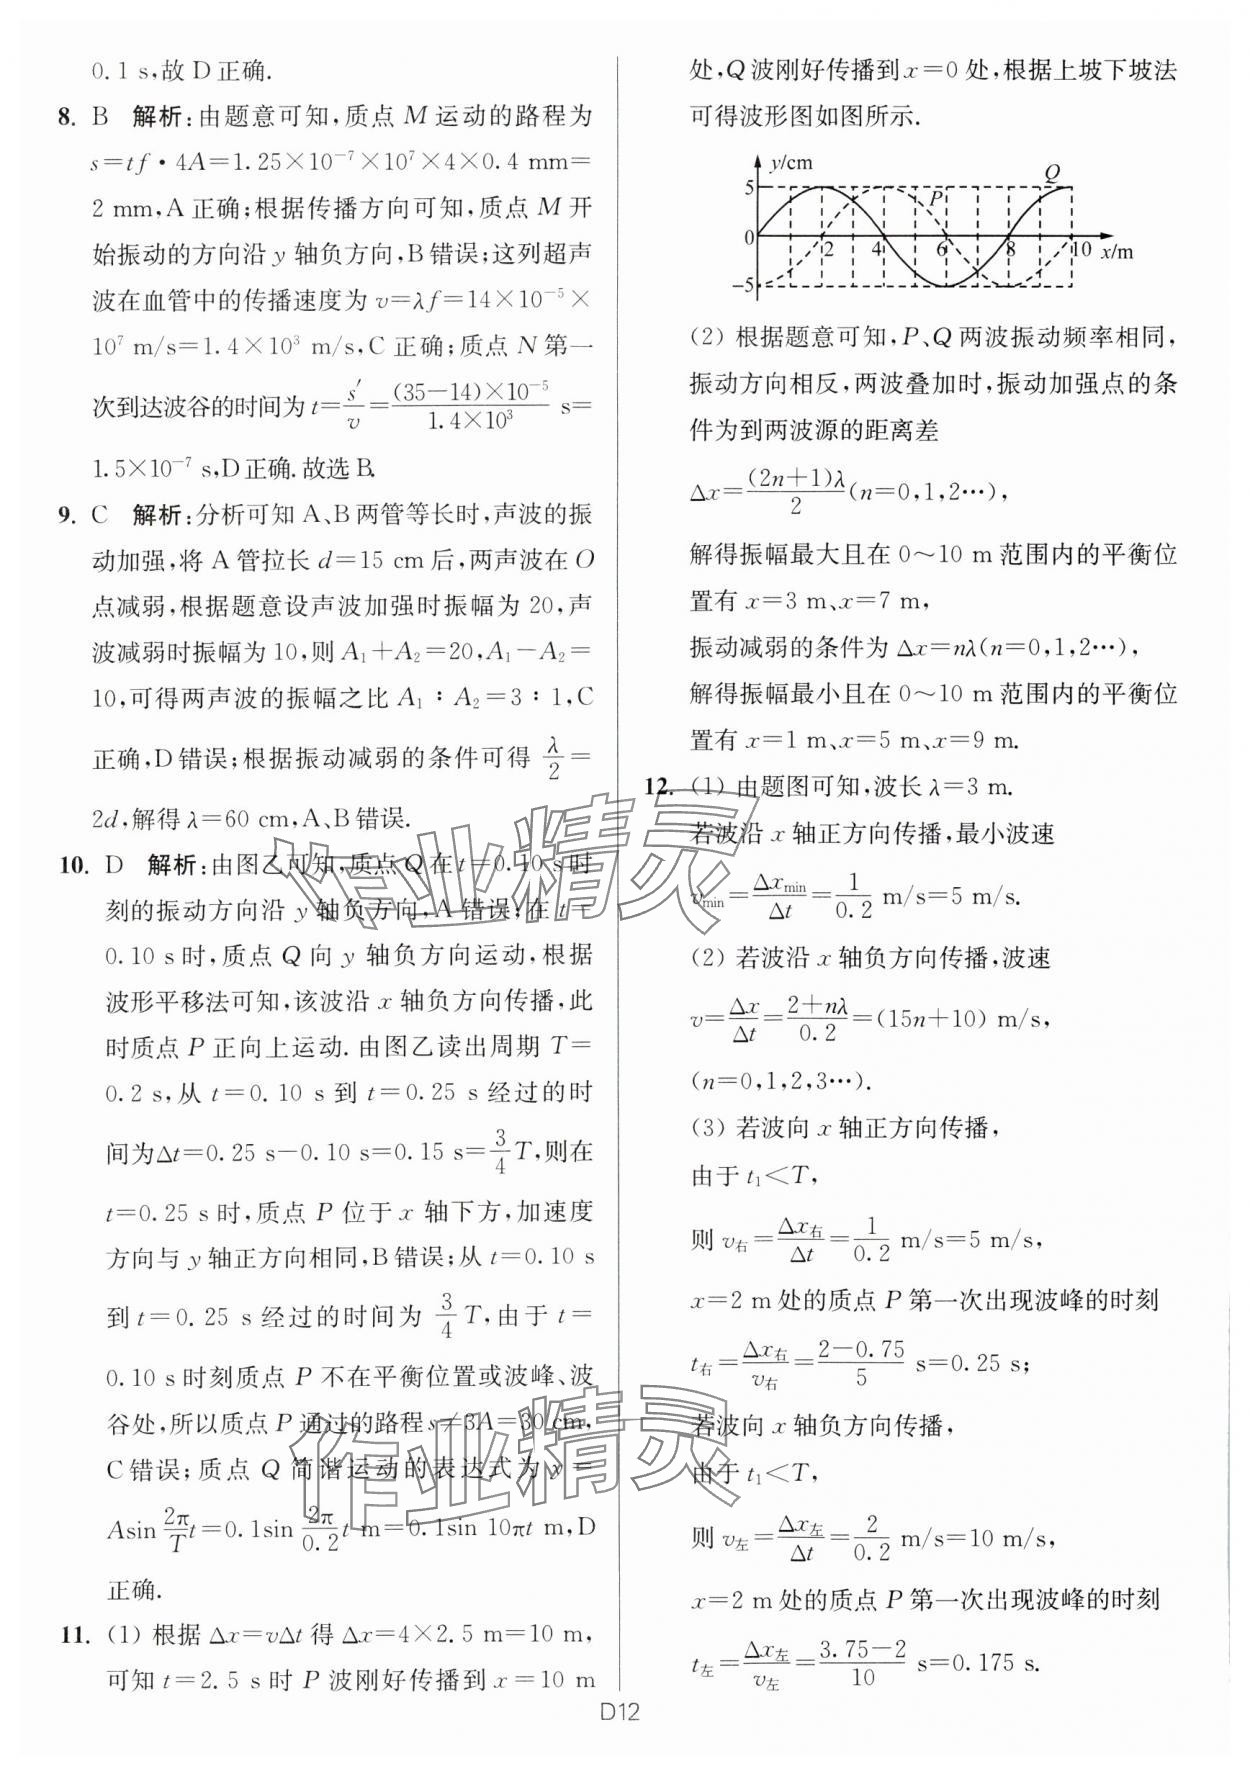 0.1 s,故 D 正确.
8. B 解析:由题意可知,质点 M 运动的路程为
s=tf·4A=1.25×10⁻⁷×10⁷×4×0.4 mm=
2 mm,A 正确;根据传播方向可知,质点 M 开
始振动的方向沿 y 轴负方向,B 错误;这列超声
波在血管中的传播速度为 v=λf=14×10⁻⁵×
10⁷ m/s=1.4×10³ m/s,C 正确;质点 N 第一
次到达波谷的时间为 t=s′/v=(35-14)×10⁻⁵/1.4×10³ s=
1.5×10⁻⁷ s,D 正确.故选 B.
9. C 解析:分析可知 A、B 两管等长时,声波的振
动加强,将 A 管拉长 d=15 cm 后,两声波在 O
点减弱,根据题意设声波加强时振幅为 20,声
波减弱时振幅为 10,则 A₁+A₂=20,A₁-A₂=
10,可得两声波的振幅之比 A₁∶A₂=3∶1,C
正确,D 错误;根据振动减弱的条件可得 λ/2=
2d,解得 λ=60 cm,A、B 错误.
10. D 解析:由图乙可知,质点 Q 在 t=0.10 s 时
刻的振动方向沿 y 轴负方向,A 错误;在 t=
0.10 s 时,质点 Q 向 y 轴负方向运动,根据
波形平移法可知,该波沿 x 轴负方向传播,此
时质点 P 正向上运动.由图乙读出周期 T=
0.2 s,从 t=0.10 s 到 t=0.25 s 经过的时
间为Δt=0.25 s-0.10 s=0.15 s=3/4T,则在
t=0.25 s 时,质点 P 位于 x 轴下方,加速度
方向与 y 轴正方向相同,B 错误;从 t=0.10 s
到 t=0.25 s 经过的时间为 3/4T,由于 t=
0.10 s 时刻质点 P 不在平衡位置或波峰、波
谷处,所以质点 P 通过的路程 s≠3A=30 cm,
C 错误;质点 Q 简谐运动的表达式为 y=
Asin 2π/T t=0.1sin 2π/0.2 t m=0.1sin 10πt m,D
正确.
11. (1) 根据 Δx=vΔt 得 Δx=4×2.5 m=10 m,
可知 t=2.5 s 时 P 波刚好传播到 x=10 m
处,Q 波刚好传播到 x=0 处,根据上坡下坡法
可得波形图如图所示.
y/cm
Q
5
P
0 2 4 6 8 10 x/m
-5
(2) 根据题意可知,P、Q 两波振动频率相同,
振动方向相反,两波叠加时,振动加强点的条
件为到两波源的距离差
Δx=(2n+1)λ/2(n=0,1,2…),
解得振幅最大且在 0~10 m 范围内的平衡位
置有 x=3 m、x=7 m,
振动减弱的条件为 Δx=nλ(n=0,1,2…),
解得振幅最小且在 0~10 m 范围内的平衡位
置有 x=1 m、x=5 m、x=9 m.
12. (1) 由题图可知,波长 λ=3 m.
若波沿 x 轴正方向传播,最小波速
vmin=Δxmin/Δt=1/0.2 m/s=5 m/s.
(2) 若波沿 x 轴负方向传播,波速
v=Δx/Δt=2+nλ/0.2=(15n+10) m/s,
(n=0,1,2,3…).
(3) 若波向 x 轴正方向传播,
由于 t₁<T,
则 v右=Δx右/Δt=1/0.2 m/s=5 m/s,
x=2 m 处的质点 P 第一次出现波峰的时刻
t右=Δx右/v右=2-0.75/5 s=0.25 s;
若波向 x 轴负方向传播,
由于 t₁<T,
则 v左=Δx左/Δt=2/0.2 m/s=10 m/s,
x=2 m 处的质点 P 第一次出现波峰的时刻
t左=Δx左/v左=3.75-2/10 s=0.175 s.
D12
作业精灵
作业精灵